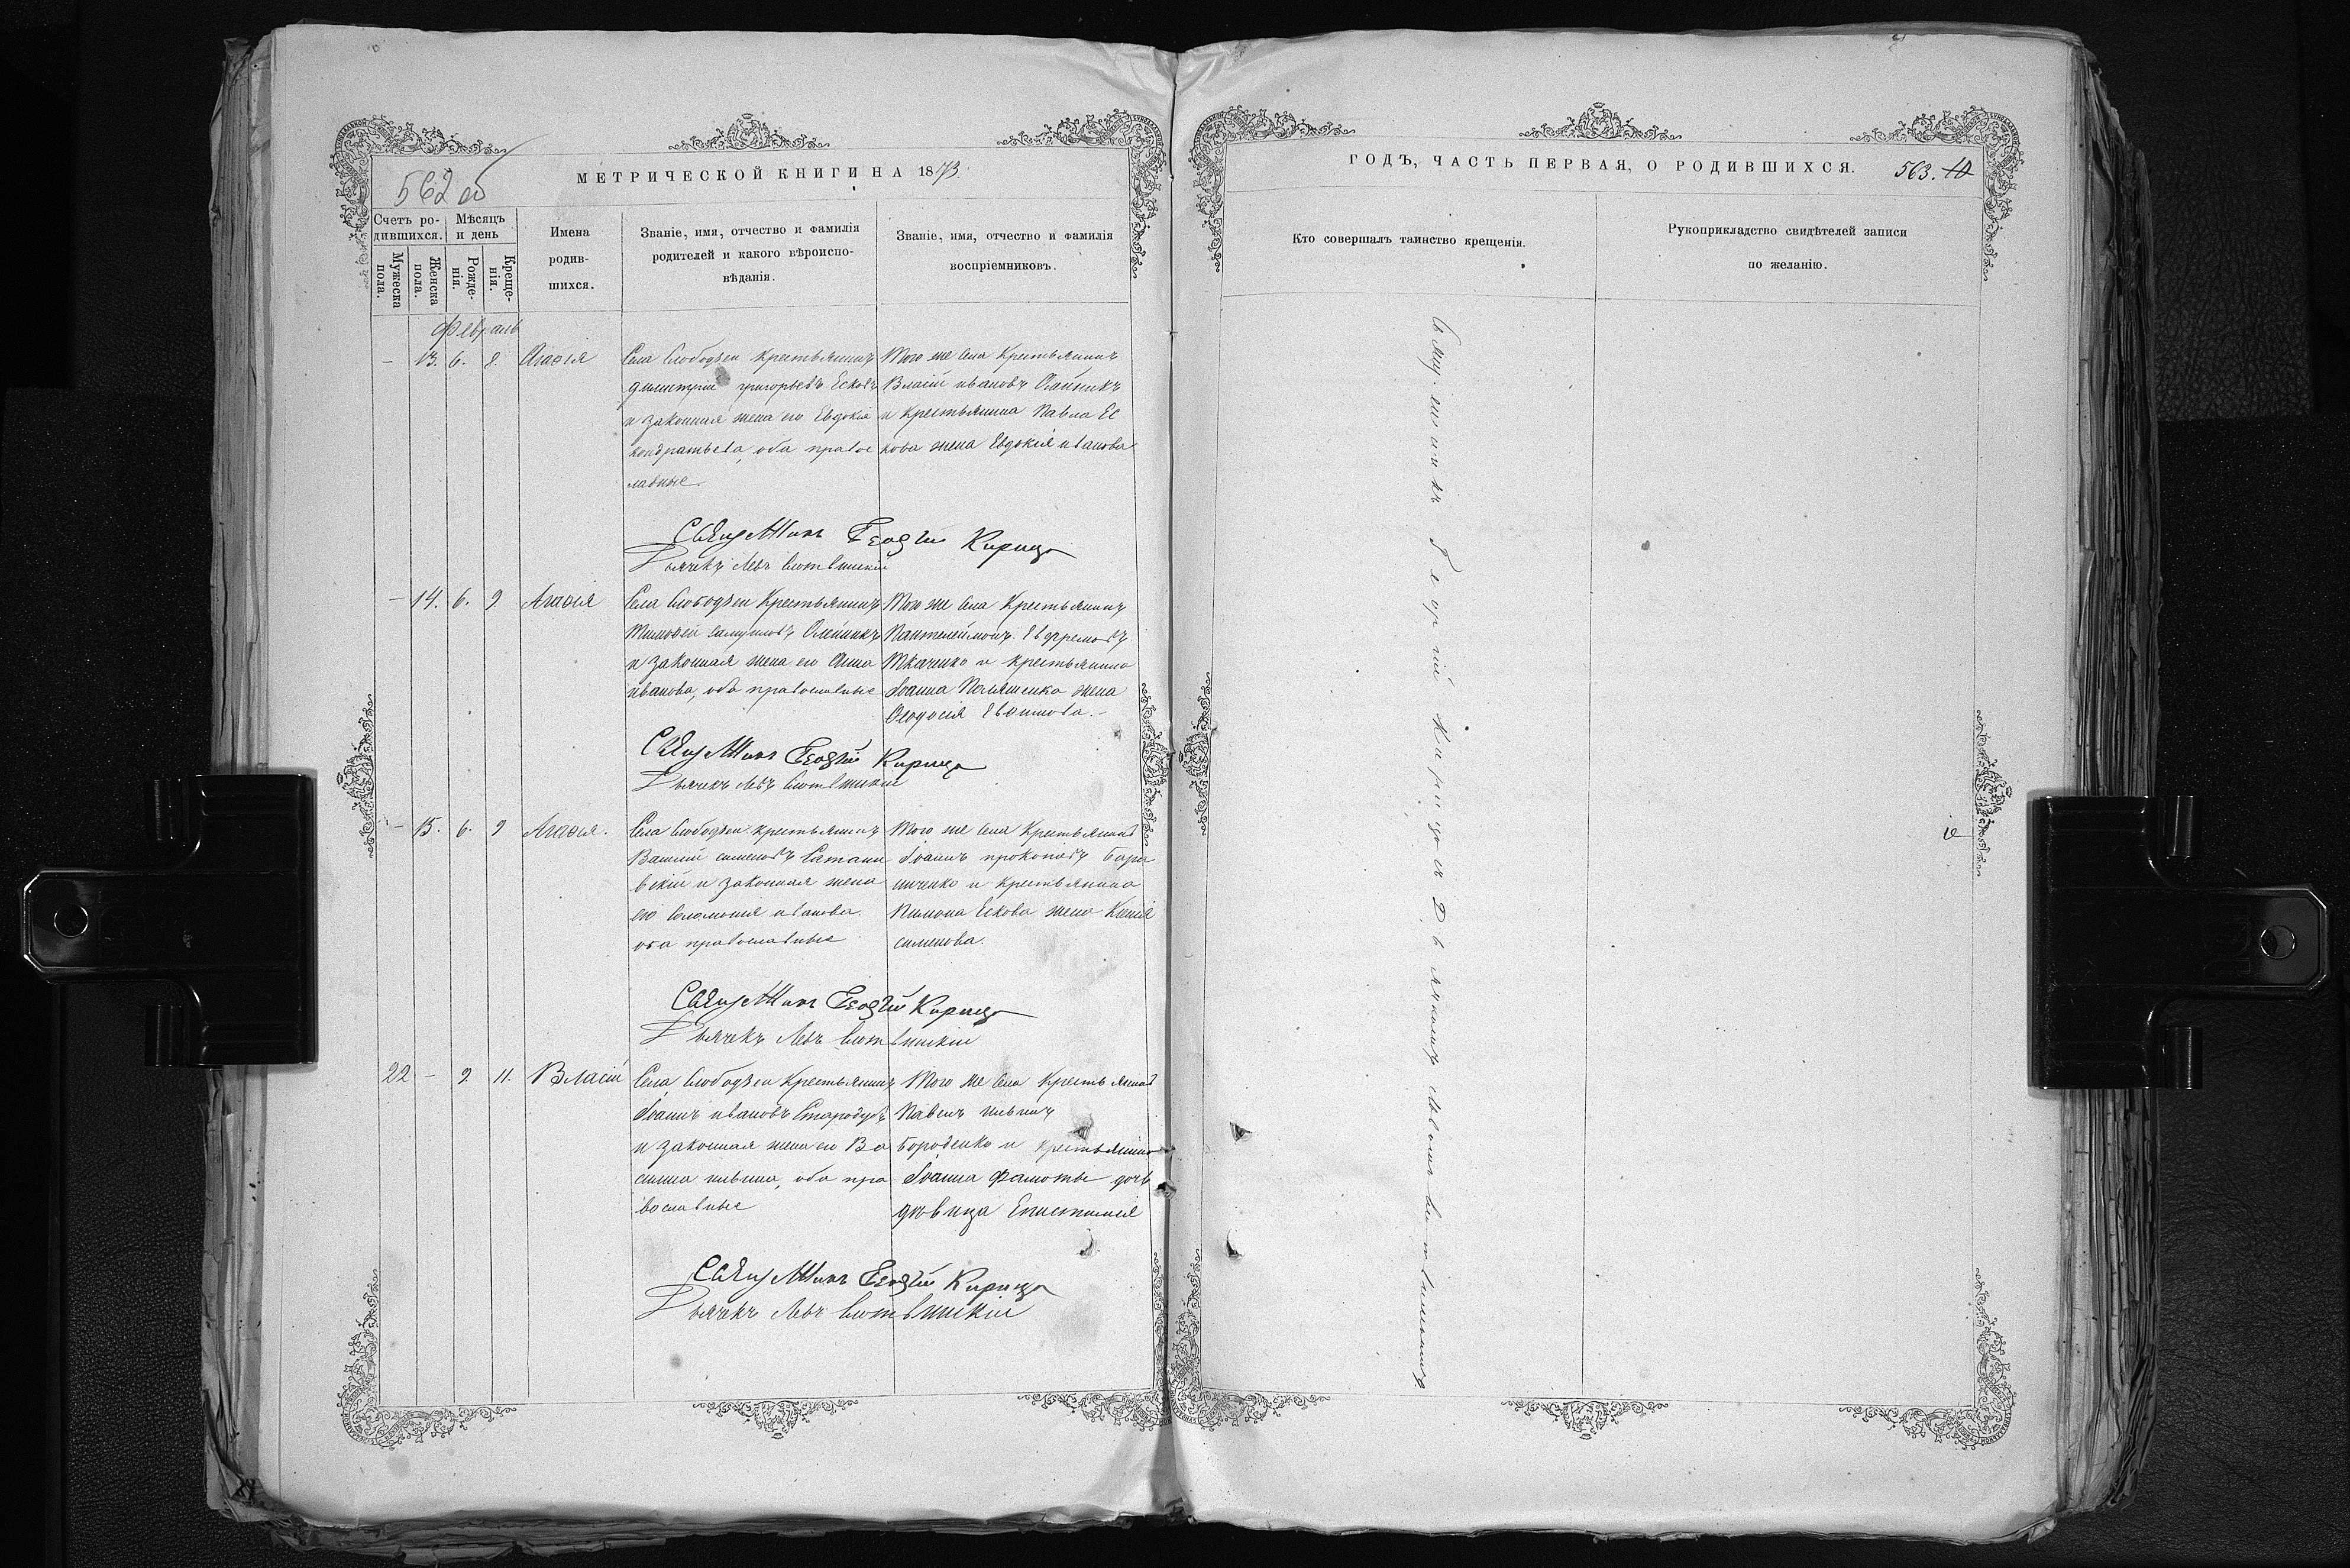 МЕТРИЧЕСКОЙ КНИГИ НА 1873
562 об
Счетъ ро-
дившихся.
Мужеска
пола.
Женска
пола.
Мѣсяцъ
и день
Рожде-
нія.
Креще-
нія.
Имена
родив-
шихся.
Званіе, имя, отчество и фамилія
родителей и какого вѣроиспо-
вѣданія.
Званіе, имя, отчество и фамилія
воспріемниковъ.
Февраль
– 13. 6. 8. Агаѳія
Села Слободзеи крестьянинъ
димитрій григорьевъ Есковъ
и законная жена его Евдокія
кондратьева, оба правос
лавные.
Того же села крестьянинъ
Власій ивановъ Олейникъ
и крестьянина Павла Ес
кова жена Евдокія иванова
Священникъ Георгій Кирица
Дьячекъ Левъ
– 14. 6. 9 Агаѳія
Села Слободзеи крестьянинъ
Тимоѳей самуиловъ Олейникъ
и законная жена его Анна
иванова, оба православные
Того же села крестьянинъ
Пантелеймонъ Евфремовъ
Ткаченко и крестьянина
Іоанна жена
Ѳеодосія
Священникъ Георгій Кирица
Дьячекъ Левъ
– 15. 6. 9 Агаѳія.
Села Слободзеи крестьянинъ
Василій сименовъ Сатано
вскій и законная жена
его Соломонія иванова
оба православные
Того же села крестьянинъ
Іоаннъ прокоповъ
и крестьянина
Пимона Ескова жена Ксенія
сименова.
Священникъ Георгій Кирица
Дьячекъ Левъ
22 – 9. 11. Власій
Села Слободзеи крестьянинъ
Іоаннъ ивановъ Стародубъ
и законная жена его Ва
силиса ильина, оба пра
вославные
Того же села крестьянинъ
Павелъ ильинъ
Бороденко и крестьянина
Іоанна дочь
дѣвица Епистимія
Священникъ Георгій Кирица
Дьячекъ Левъ
ГОДЪ, ЧАСТЬ ПЕРВАЯ, О РОДИВШИХСЯ.
563. 10
Кто совершалъ таинство крещенія.
Рукоприкладство свидѣтелей записи
по желанію.
Священникъ Георгій Кирица съ Дьячкомъ Львомъ